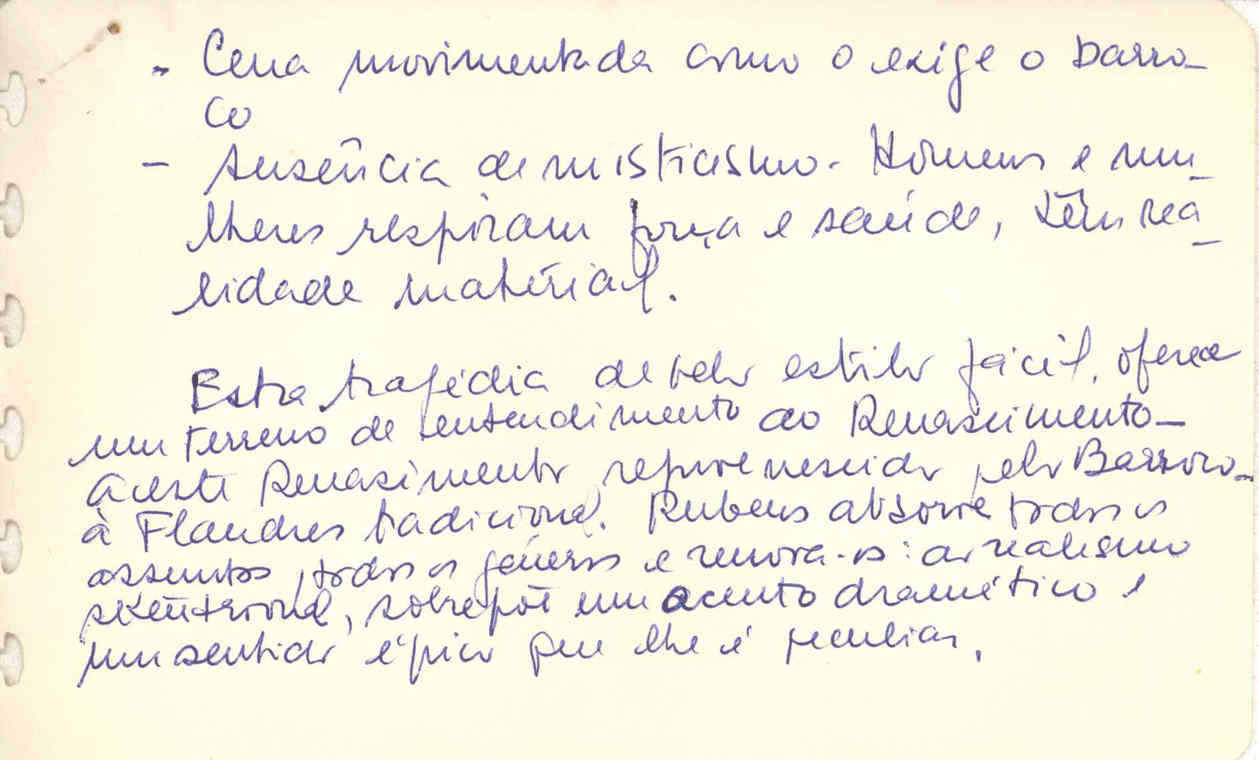 - Cena movimentada como o exige o barro-
co
- Ausência de misticismo. Homens e mu-
lheres respiram força e saúde, têm rea-
lidade material.
Esta tragédia de belo estilo fácil, oferece
um terreno de entendimento ao Renascimento -
a este Renascimento rejuvenescido pelo Barroco -
à Flandres tradicional. Rubens absorve todos os
assuntos, todos os géneros e renova-os: ao realismo
setentrional, sobrepõe um acento dramático e
um sentido épico que lhe é peculiar.